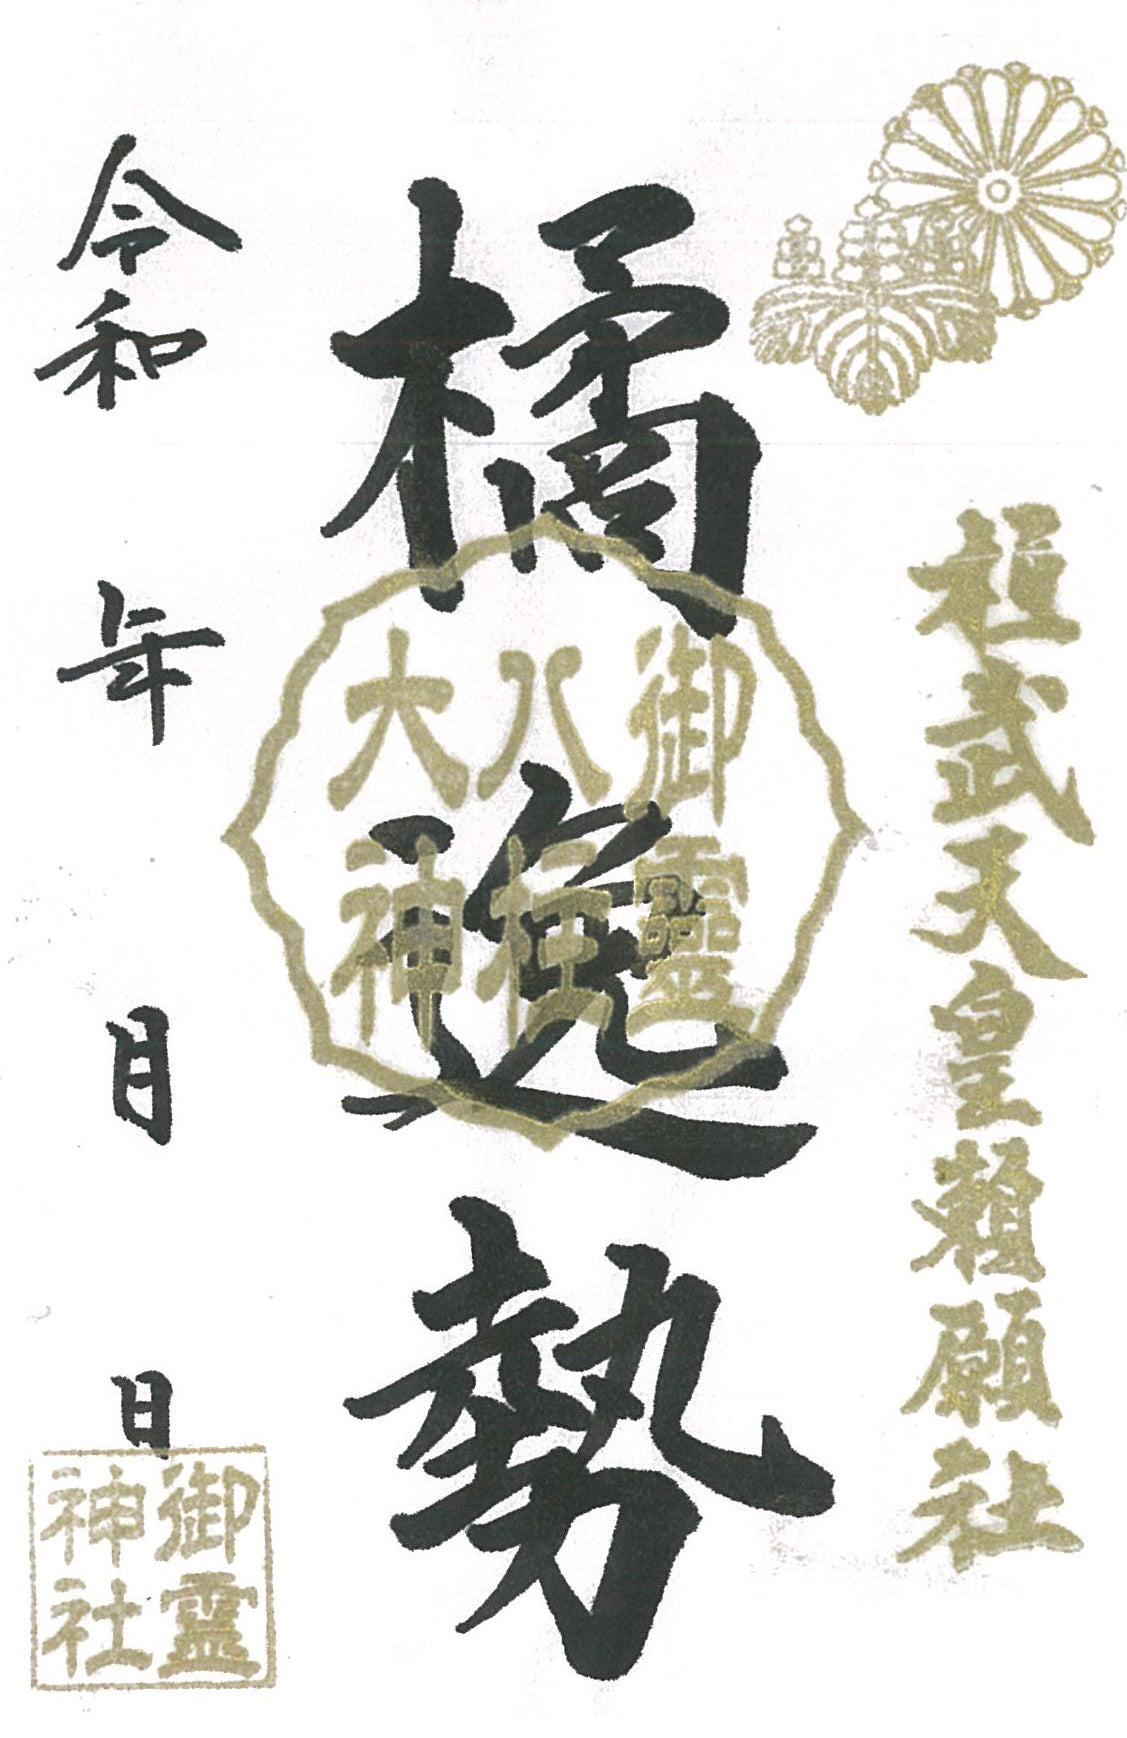 桓武天皇頼願社
橘逸勢
御靈
八柱
大神
令和 年 月 日
御靈
神社